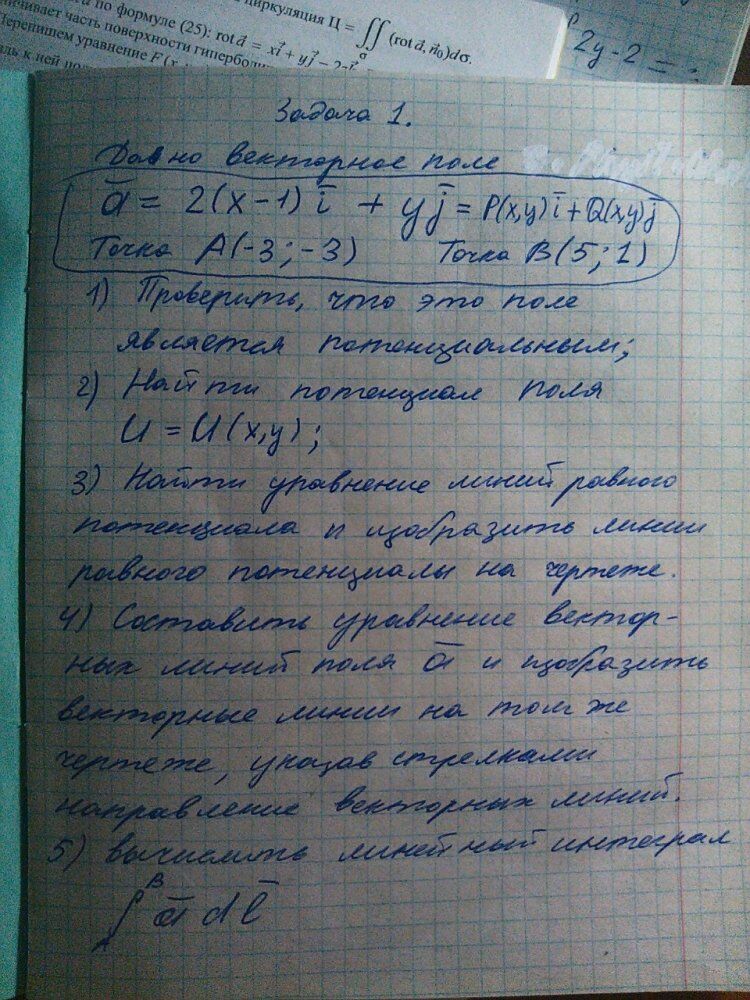 по формуле (25): rot a⃗ = xi⃗ + yj⃗ − 2zk⃗
циркуляция Ц = ∬ (rot a⃗, n⃗₀)dσ.
σ
ничивает часть поверхности гипербол
Перепишем уравнение F(x
2y-2 =
Задача 1.
Дано векторное поле
ā = 2(x-1) ī + y j̄ = P(x,y) ī + Q(x,y) j̄
Точка A(-3;-3) Точка B(5;1)
1) Проверить, что это поле
является потенциальным;
2) Найти потенциал поля
U = U(x,y);
3) Найти уравнение линий равного
потенциала и изобразить линии
равного потенциалы на чертеже.
4) Составить уравнение вектор-
ных линий поля ā и изобразить
векторные линии на том же
чертеже, указав стрелками
направление векторных линий.
5) Вычислить линейный интеграл
B
∫ ā d l̄
A